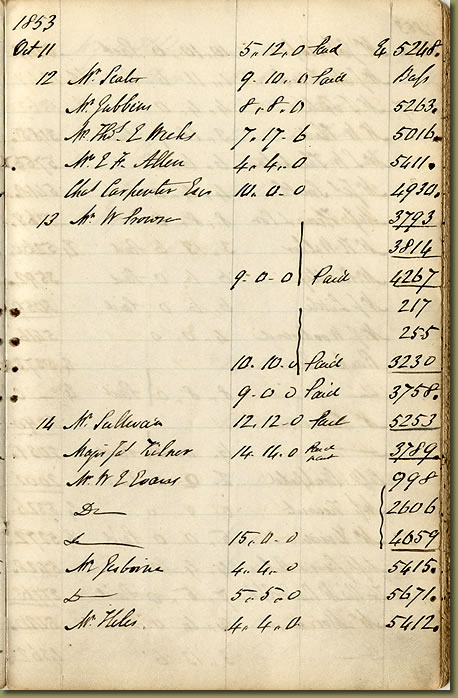 1853
Oct 11 5. 12. 0 Paid & 5248.
12 Mr Scales 9. 10. 0 Paid Bass
Mr Gibbins 8. 8. 0 5263.
Mr Thos. E Weeks 7. 17. 6 5016.
Mr E H. Allen 4. 4. 0 5411.
Chas Carpenter Esq 10. 0. 0 4930.
13 Mr W Crowne 3793
3814
9. 0. 0 Paid 4267
217
255
10. 10. 0 Paid 3230
9. 0 0 Paid 3758.
14 Mr Sullivan 12. 12. 0 Paid 5253
Major Kilner 14. 14. 0 3789.
Mr W E Evans 998
Do 2606
Do 15. 0. 0 4059
Mr Gisborne 4. 4. 0 5415.
Do 5. 5. 0 5671.
Mr Heles. 4. 4. 0 5412.